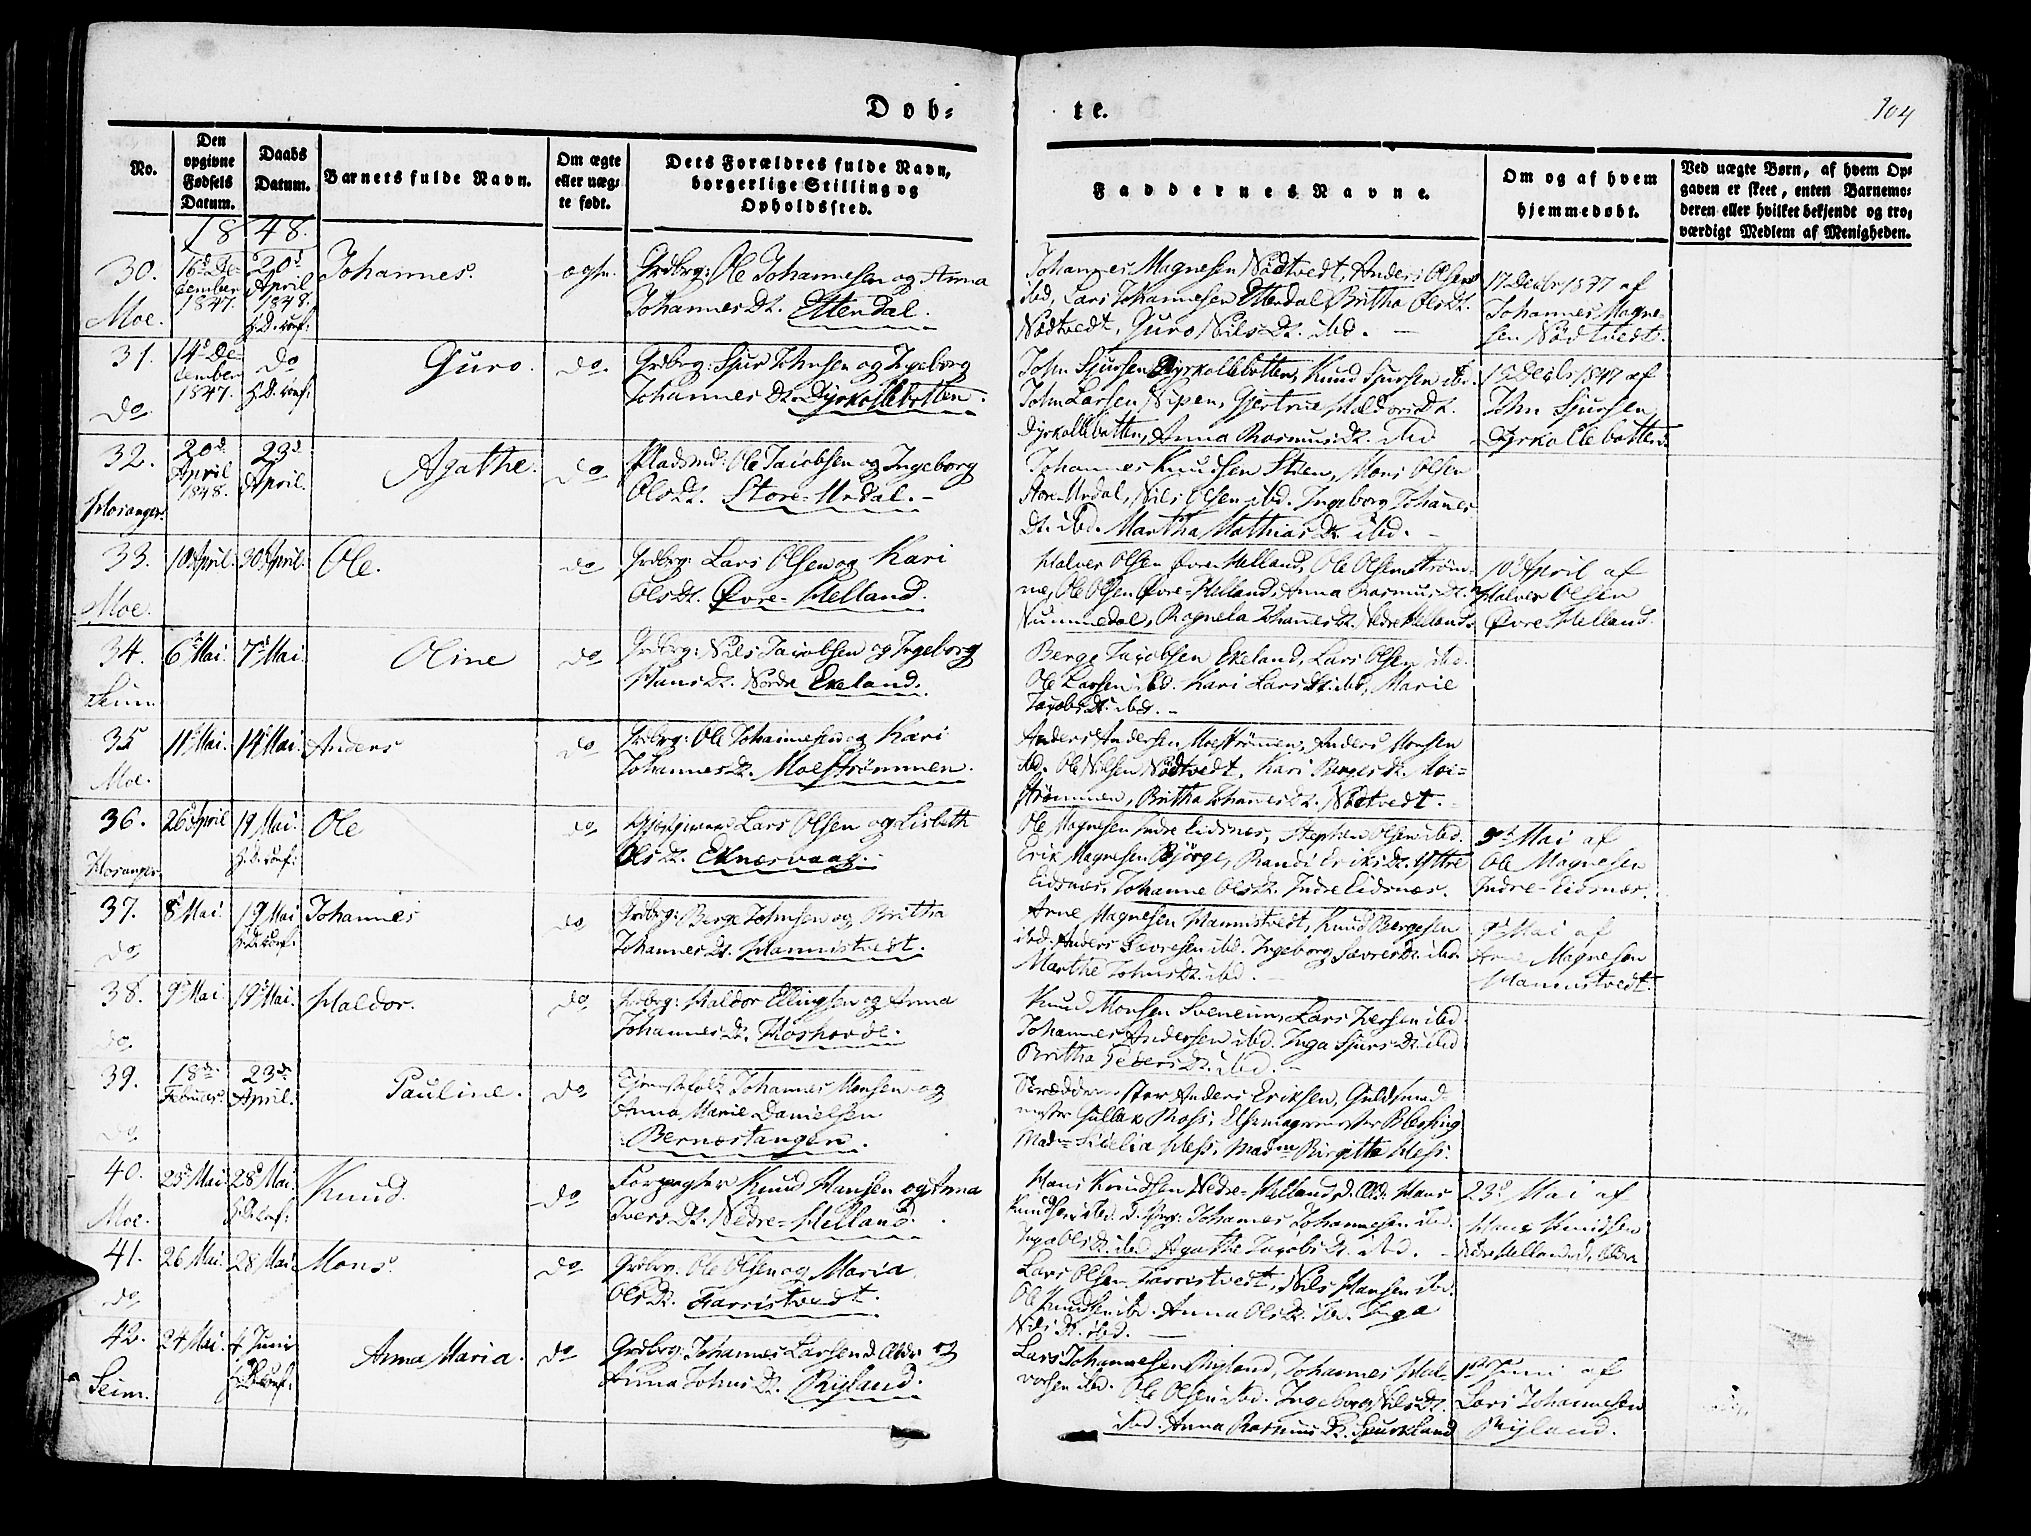 Døb-
te.
104
No.
Den opgivne Fødsels Datum.
Daabs Datum.
Barnets fulde Navn.
Om ægte eller uæg-te født.
Dets Forældres fulde Navn, borgerlige Stilling og Opholdssted.
Faddernes Navne.
Om og af hvem hjemmedøbt.
Ved uægte Børn, af hvem Op-gaven er skeet, enten Barnemo-deren eller hvilket bekjendt og tro-værdigt Medlem af Menigheden.
1848.
30. Moe.
16d De-cember 1847.
20d April 1848. H.D. conf:
Johannes.
Grdbrg: Ole Johannesen og Anna
Johannes Dt. Ettendal.
Johannes Magnesen Nødtvedt, Anders Olsen
ibd, Lars Johannesen Ettendal, Britha Ols Dt.
Nødtvedt, Guro Nils Dt. ibd.
17 Decbr 1877 af
Johannes Magne-
sen Nødtvedt.
31. do
14d De-cember 1847.
do H.D. conf:
Guro.
do.
Grdbrg: Sjur Johnsen og Ingeborg
Johannes Dt. Dyrkollebotten.
John Sjursen Dyrkollebotten, Knud Sjursen ibd.
John Larsen Nipen, Gjertrue Haldors Dt.
Dyrkollebotten, Anna Rasmus Dt. ibd
Decbr 1847 af
John Sjursen
Dyrkollebotten.
32. Hosanger.
20d April 1848.
23d April.
Agathe.
do
Pladsmd: Ole Jacobsen og Ingeborg
Ols Dt. Store-Urdal.
Johannes Knudsen Stien, Mons Olsen
Store-Urdal, Nils Olsen ibd. Ingeborg Johannes
Dt. ibd. Martha Mathias Dt. ibd.
33. Moe.
10d April.
30d April.
Ole.
do
Grdbrg: Lars Olsen og Kari
Ols Dt. Øvre-Helland.
Halver Olsen Øvre-Helland, Ole Olsen Strøm-
me, Ole Olsen Øvre-Helland, Anna Rasmus Dt.
Nummedal, Ragnela Johannes Dt. Nedre Helland.
10d April af
Halver Olsen
Øvre Helland.
34. Seim.
6d Mai.
7d Mai.
Oline
do
Grdbrg: Nils Jacobsen og Ingeborg
Hans Dt. Nordre Ekeland.
Berge Jacobsen Ekeland, Lars Olsen ibd.
Ole Larsen ibd. Kari Lars Dt. ibd, Marie
Jacobs Dt. ibd.
35 Moe.
11d Mai.
14d Mai.
Anders
do
Grdbrg: Ole Johannesen og Kari
Johannes Dt. Moestrømmen.
Anders Andersen Moestrømmen, Anders Monsen
ibd. Ole Nilsen Nødtvedt, Kari Berges Dt. Moe-
strømmen, Britha Johannes Dt. Nødtvedt.
36. Hosanger.
26d April
19 Mai. H.D. conf:
Ole
do
Lars Olsen og Lisbeth
Ols Dt. Eknæsvaag.
Ole Magnesen Indre Eidsnæs, Stephen Olsen ibd.
Erik Magnesen Bjørge, Randi Eriks Dt. Ytre
Eidsnæs, Johanne Ols Dt. Indre Eidsnæs.
Mai af
Ole Magnesen
Indre-Eidsnæs.
37. do
8d Mai.
19 Mai H.D. conf:
Johannes
do
Grdbrg: Berge Johnsen og Britha
Johannes Dt. Hannistvedt.
Arne Magnesen Hannistvedt, Knud Bergesen
ibd. Anders Sævresen ibd. Ingeborg Sævres Dt. ibd.
Marthe Johns Dt. ibd.
9d Mai af
Arne Magnesen
Hannistvedt.
38. do
9d Mai.
19d Mai.
Haldor.
do
Grdbrg: Haldor Ellingsen og Anna
Johannes Dt.
Knud Monsen Lars Iversen ibd.
Johannes Andersen ibd. Inga Sjurs Dt. ibd
Britha Peders Dt. ibd.
39. do
18de Februar.
23de April.
Pauline.
do
Johannes Monsen og
Anna Marie Danielsen
Bernestangen.
Skræddermester Anders Eriksen, Guldsmed-
mester Gullak Ross, Blessing
Madme Fidelia Hess, Madme Birgitta Hess.
40. Moe.
25d Mai.
28d Mai. H.D. conf:
Knud.
do
Forpagter Knud Hansen og Anna
Ivers Dt. Nedre-Helland.
Hans Knudsen Nedre-Helland, d. Æld: Hans
Knudsen ibd. d. yng: Johannes Johannesen ibd.
Inga Ols Dt. ibd Agathe Jacobs Dt. ibd.
23d Mai af
Hans Knudsen
Nedre Helland d. Ældre
41. do
26 Mai.
28 Mai.
Mons.
do
Grdbrg. Ole Olsen og Maria
Ols Dt. Farristvedt.
Lars Olsen Farristvedt, Nils Hansen ibd.
Ole Knudsen ibd. Anna Ols Dt. ibd. Inga
Nils Dt. ibd.
42. Seim.
24 Mai.
4 Juni H.D. conf:
Anna Maria.
do
Grdbrg. Johannes Larsen d. Ældr. og
Anna Johns Dt. Ryland.
Lars Johannesen Ryland, Johannes Hal-
vorsen ibd. Ole Olsen ibd. Ingeborg Nils Dt.
ibd. Anna Rasmus Dt. Spurkland
1ste Juni af
Lars Johannesen
Ryland.